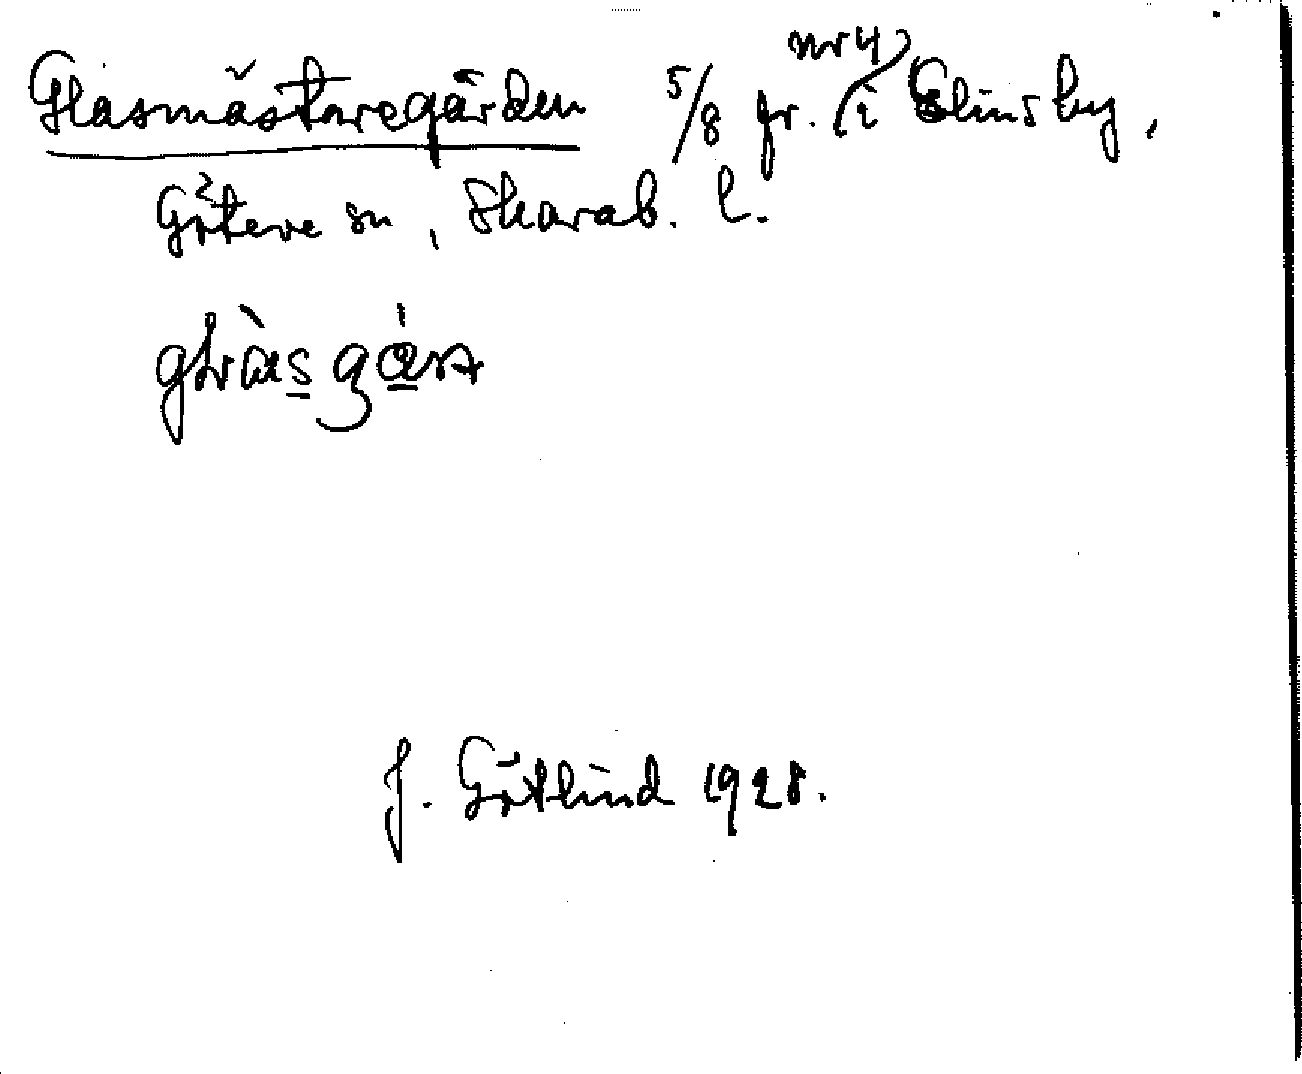 Glasmästaregården 5/8 gr. nr 4 i Elinsby,
Göteve sn, Skarab. l.
J. Götlind 1928.